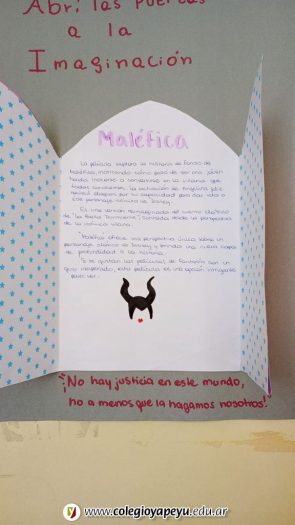 Abrí las Puertas
a la
Imaginación
Maléfica
La película explora la historia de fondo de
Maléfica, mostrando cómo pasó de ser una joven
hada inocente a convertirse en la villana que
todos conocemos. La actuación de Angelina Jolie
por su capacidad para dar vida a
este personaje icónico de Disney.
Es una versión reimaginada del cuento clásico
de "La Bella Durmiente", contada desde la perspectiva
de la icónica villana.
"Maléfica ofrece una perspectiva única sobre un
personaje clásico de Disney y brinda una nueva capa
de profundidad a la historia.
Si te gustan las películas de fantasía con un
giro inesperado, esta película es una opción
para ver.
"¡No hay justicia en este mundo,
no a menos que la hagamos nosotros!"
www.colegioyapeyu.edu.ar